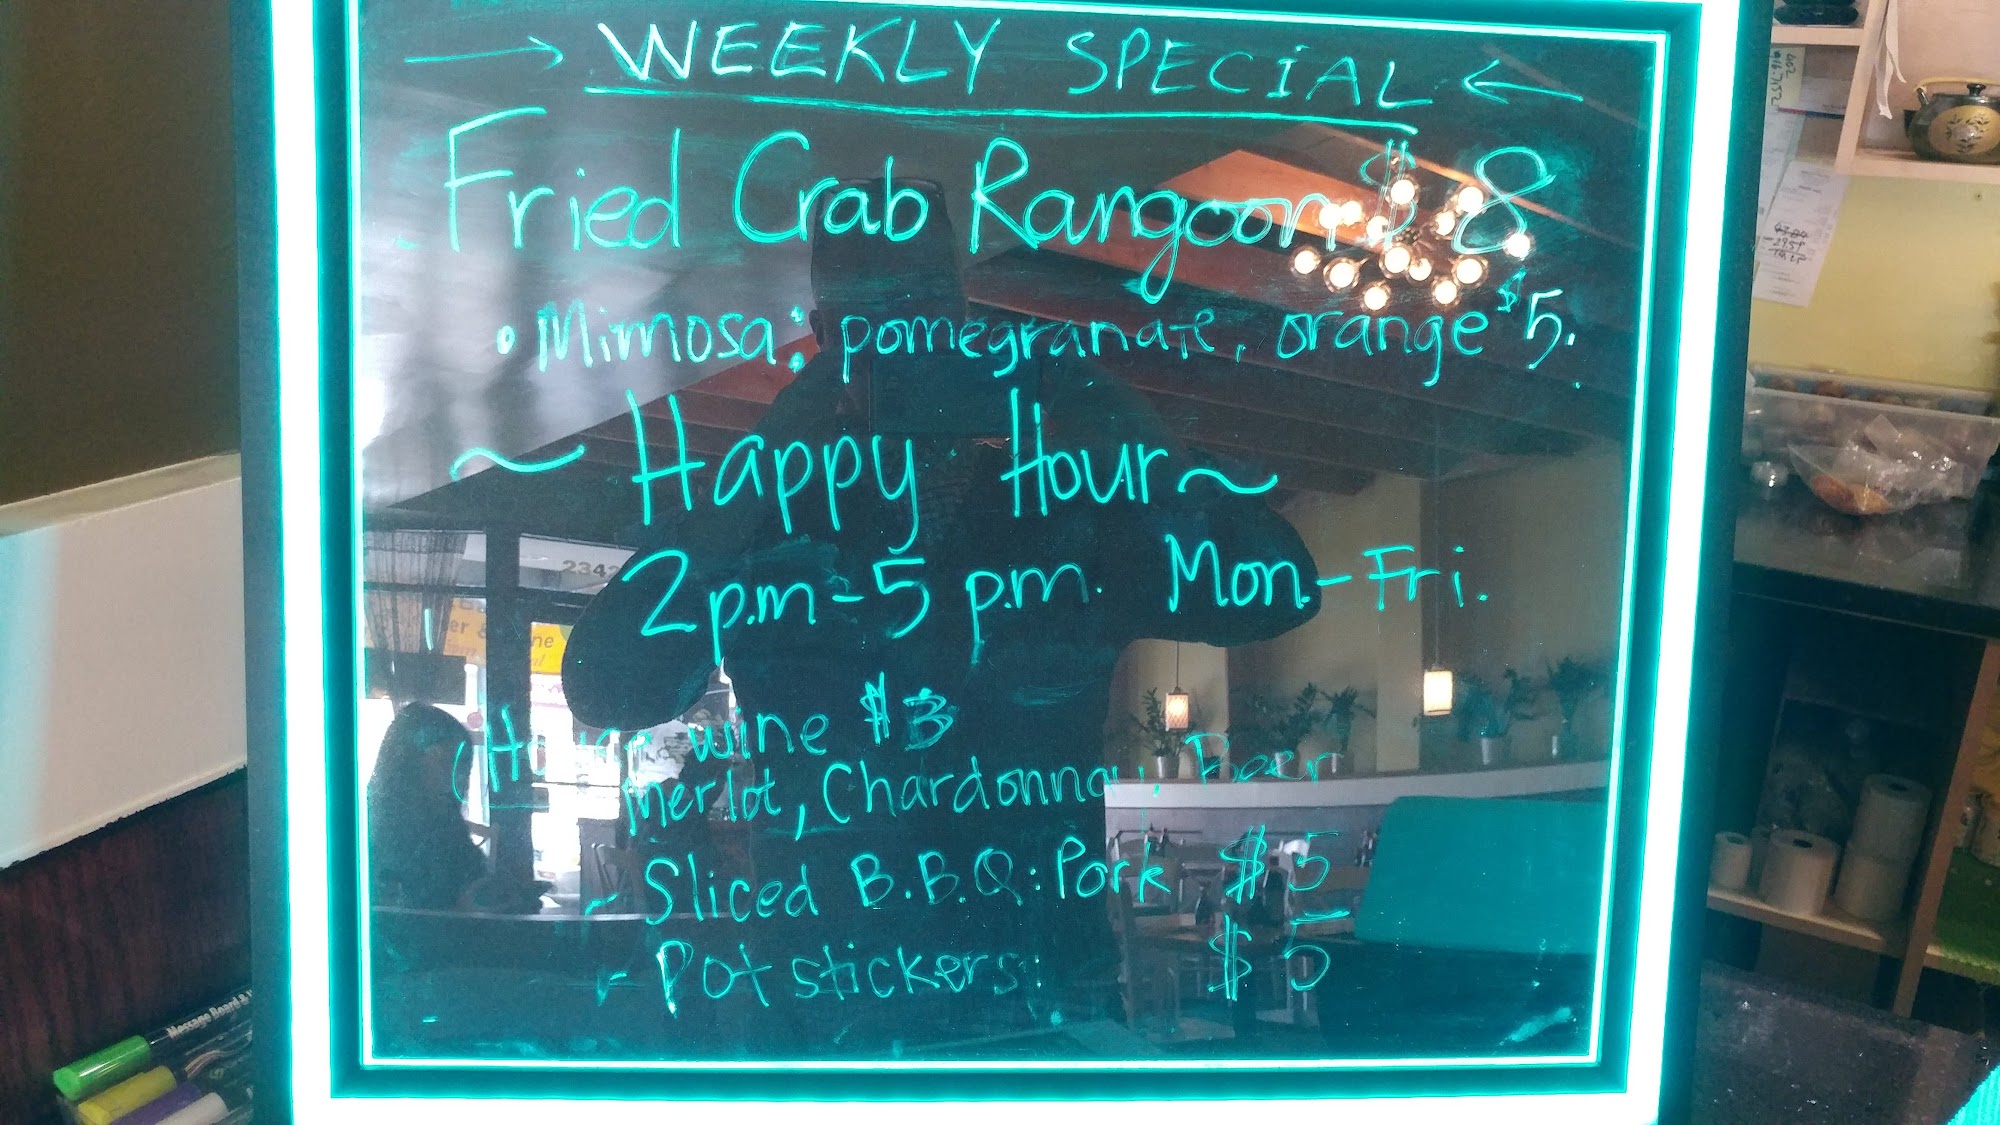 → WEEKLY SPECIAL ←
Fried Crab Rangoon $8
• Mimosa: pomegranate, orange $5.
~ Happy Hour ~
2p.m - 5 p.m. Mon.-Fri.
(House wine $3
Merlot, Chardonnay, Beer
- Sliced B.B.Q: Pork $5
- Pot stickers: $5
2342
Message Board